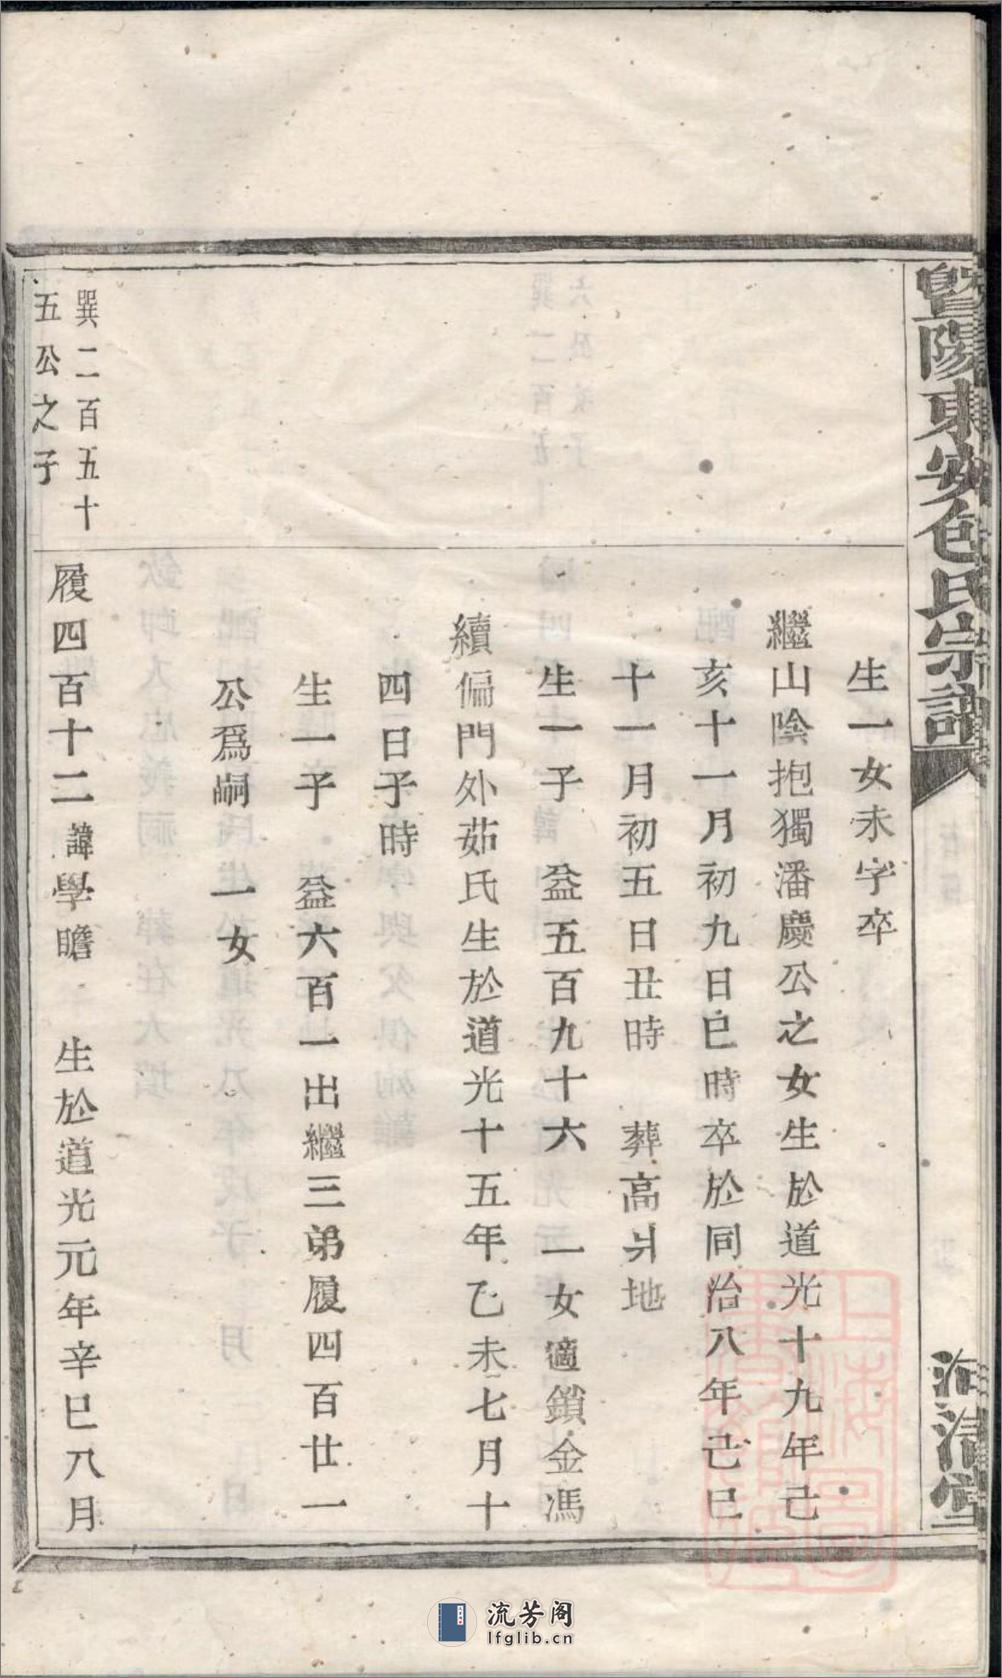 暨陽東安包氏宗譜
清堂
生一女未字卒
繼山陰抱獨潘慶公之女生於道光十九年己
亥十一月初九日巳時卒於同治八年己巳
十一月初五日丑時 葬高爿地
生一子 益五百九十六 一女適鎖金馮
續偏門外茹氏生於道光十五年乙未七月十
四日子時
生一子 益六百一出繼三弟履四百廿一
公爲嗣 一女
巽二百五十
五公之子
履四百十二諱學瞻 生於道光元年辛巳八月
上海圖
流芳阁
lfglib.cn